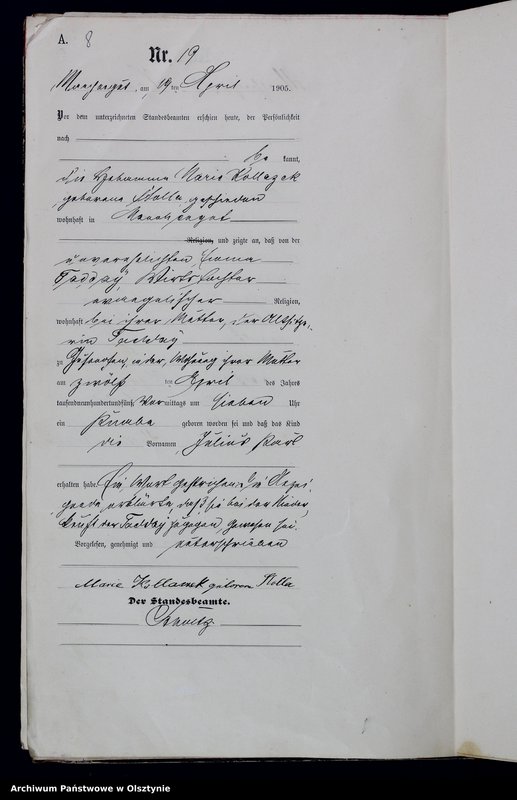 A. 8
Nr. 19
am 19 ten April 1905.
Vor dem unterzeichneten Standesbeamten erschien heute, der Persönlichkeit
nach
be kannt,
die Hebamme Marie Kollazek
geborene Stolla geschieden
wohnhaft in
Religion, und zeigte an, daß von der
unverehelichten Emma
Tadday, Wirtstochter
evangelischer Religion,
wohnhaft bei ihrer Mutter, der Altsitze-
rin Tadday
zu in der Wohnung ihrer Mutter
am zwölf ten April des Jahres
tausendneunhundertundfünf, Vor mittags um sieben Uhr
ein Knabe geboren worden sei und daß das Kind
die Vornamen Julius Karl
erhalten habe. Ein Wort gestrichen. Die Anzei-
gende erklärte, daß sie bei der Nieder-
kunft der Tadday zugegen gewesen sei.
Vorgelesen, genehmigt und unterschrieben
Marie Kollazek geborene Stolla
Der Standesbeamte.
Archiwum Państwowe w Olsztynie